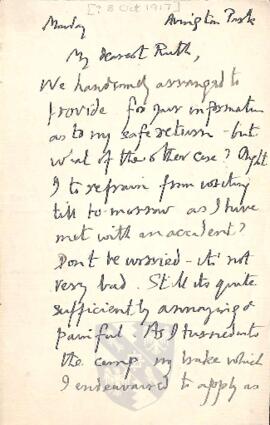 [? 8 Oct 1917]
Monday Avington Park
My dearest Ruth,
We handsomely arranged to
provide for your information
as to my safe return - but
what of the other case? Ought
I to refrain from writing
till to-morrow as I have
met with an accident?
Don't be worried - it's not
very bad. Still its quite
sufficiently annoying &
painful. As I turned into
the camp my brake which
I endeavoured to apply as